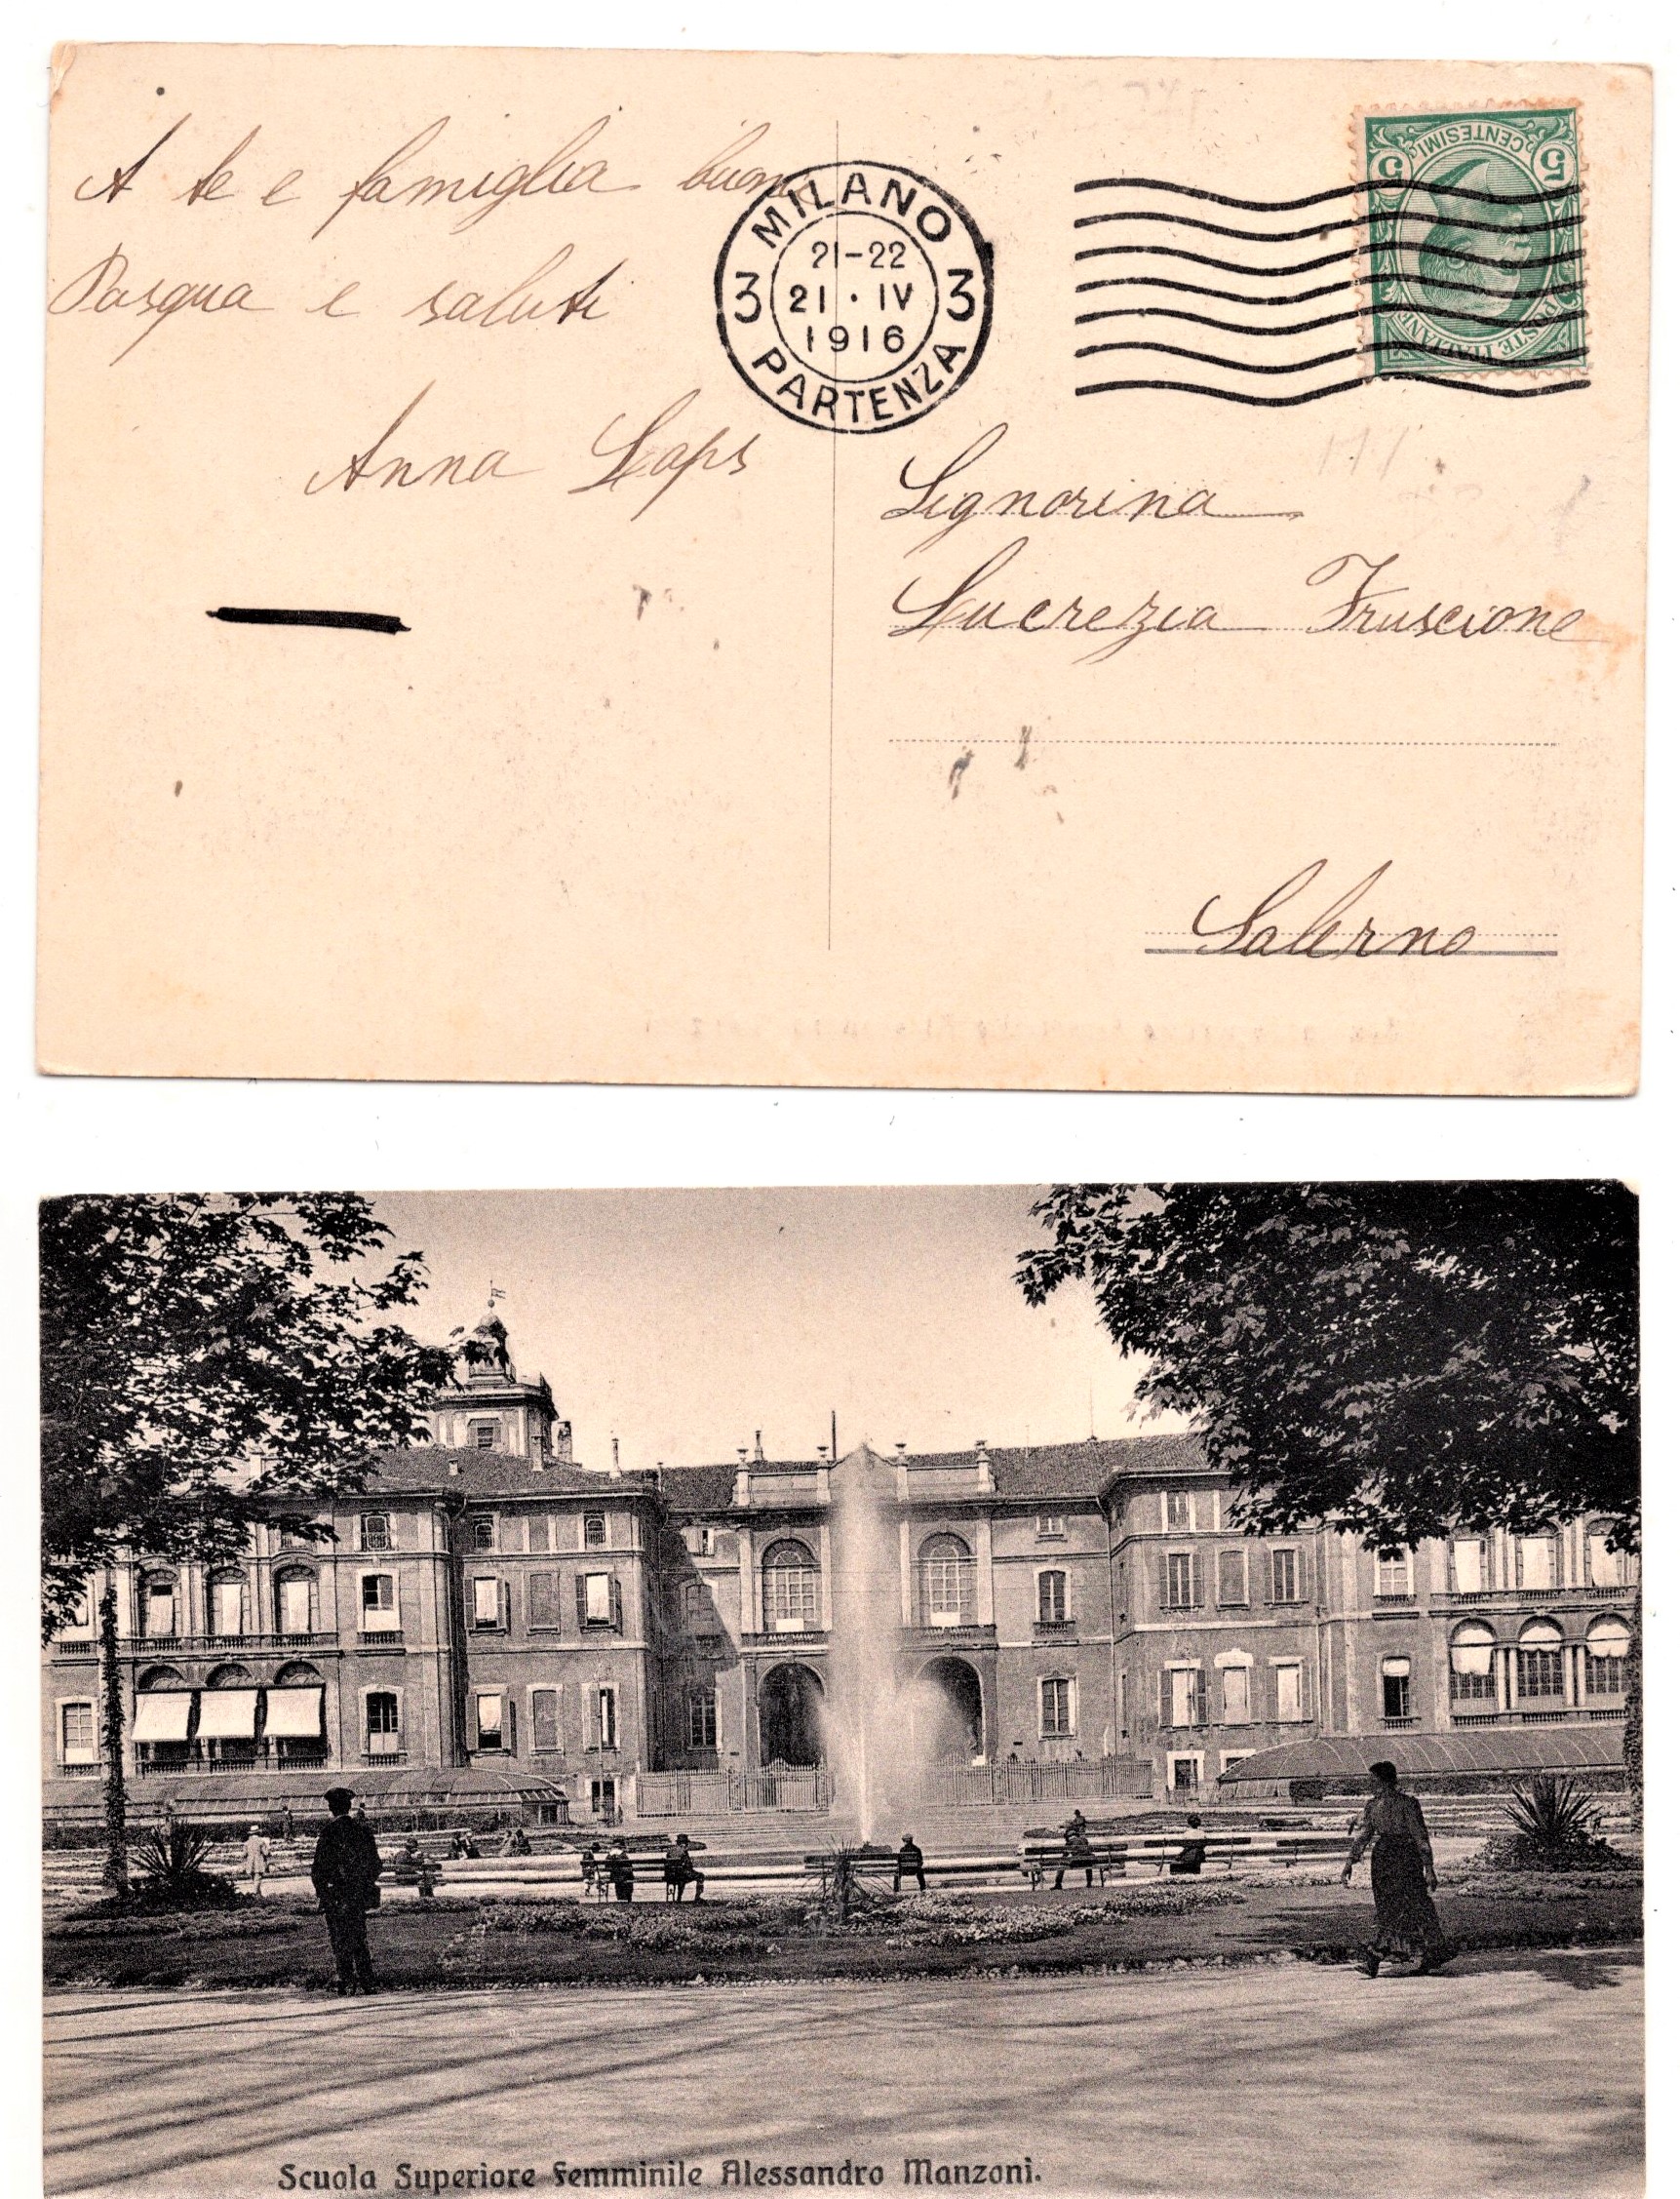 A te e famiglia buona
Pasqua e saluti
Anna Laps
MILANO
21-22
21 · IV
1916
3 3
PARTENZA
CENTESIMI
5 5
POSTE ITALIANE
Signorina
Lucrezia Fruscione
Salerno
Scuola Superiore Femminile Alessandro Manzoni.